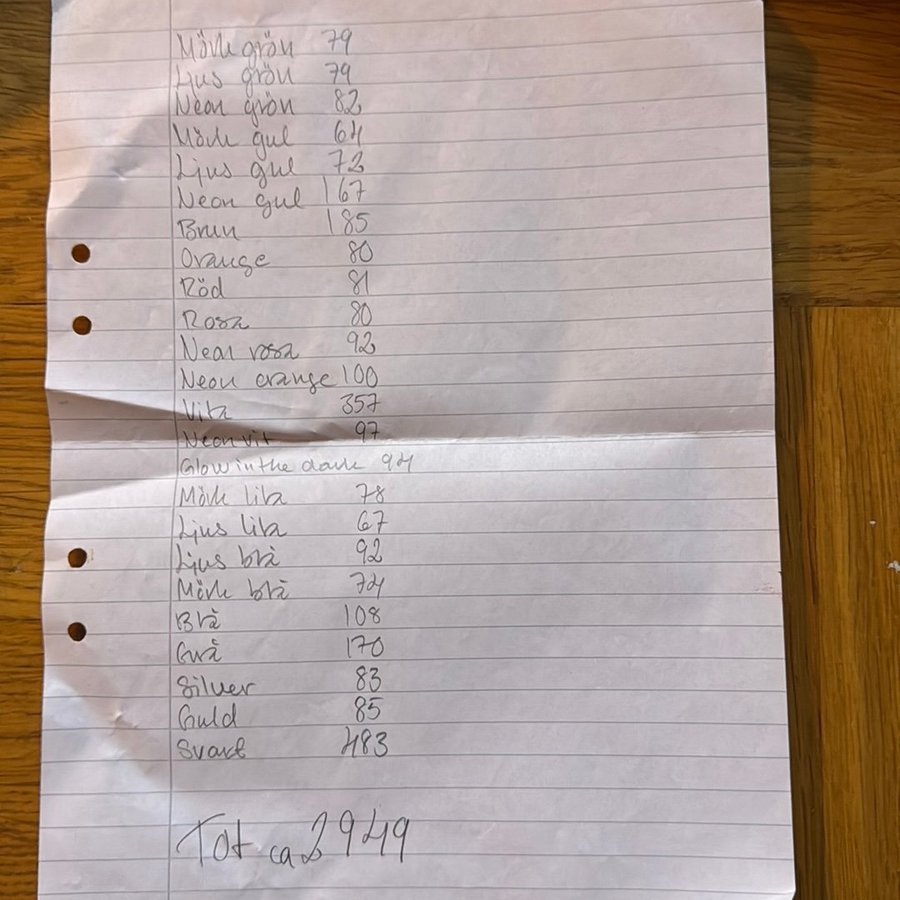 Mörk grön 79
Ljus grön 79
Neon grön 82
Mörk gul 64
Ljus gul 72
Neon gul 167
Brun 185
Orange 80
Röd 81
Rosa 80
Neon rosa 92
Neon orange 100
Vita 357
Neon vit 97
Glow in the dark 94
Mörk lila 78
Ljus lila 67
Ljus blå 92
Mörk blå 74
Blå 108
Grå 170
Silver 83
Guld 85
Svart 483
Tot ca 2949